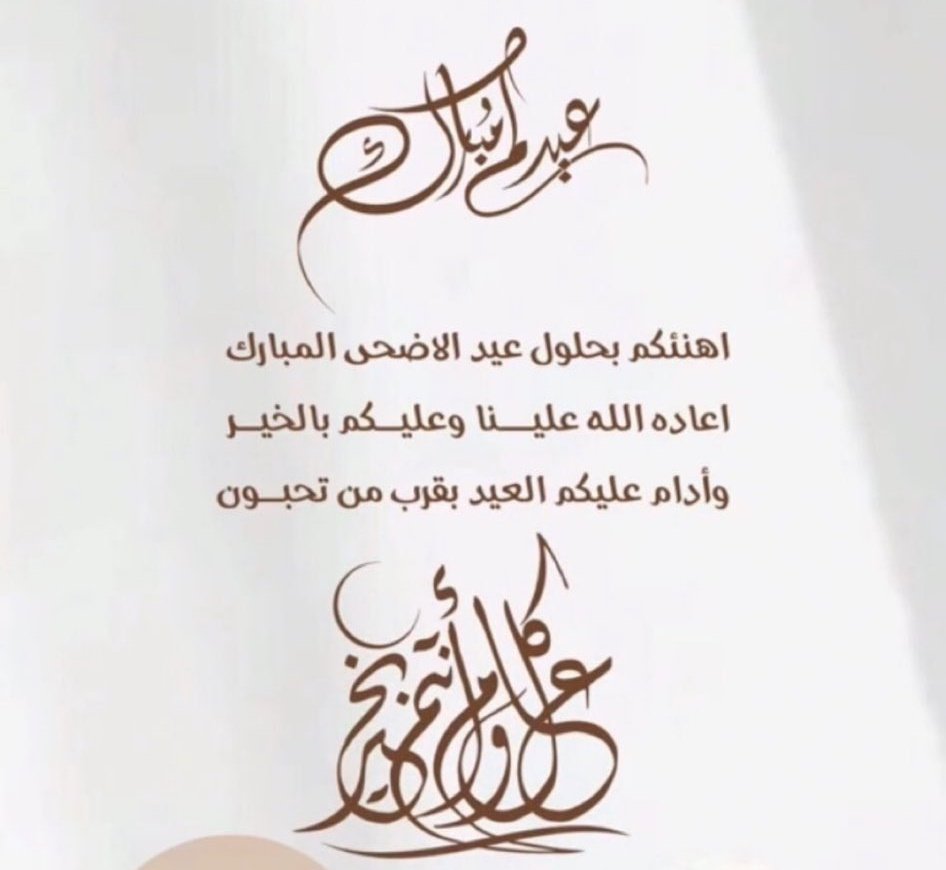 عيدكم مُبارك
اهنئكم بحلول عيد الاضحى المبارك
اعاده الله علينا وعليكم بالخير
وأدام عليكم العيد بقرب من تحبون
كل عام وأنتم بخير